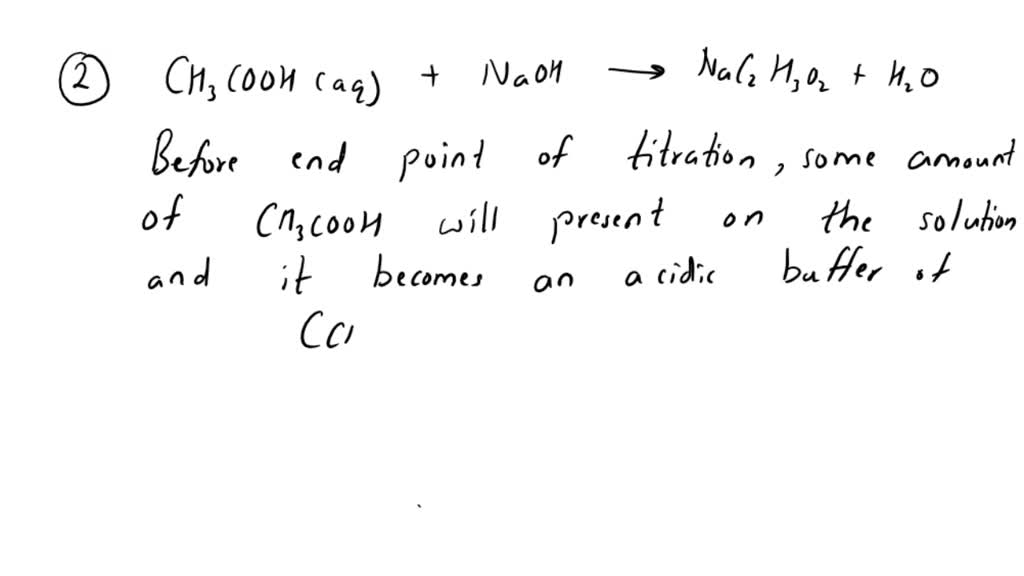 ② CH₃COOH (aq) + NaOH → NaC₂H₃O₂ + H₂O
Before end point of titration, some amount
of CH₃COOH will present on the solution
and it becomes an acidic buffer of